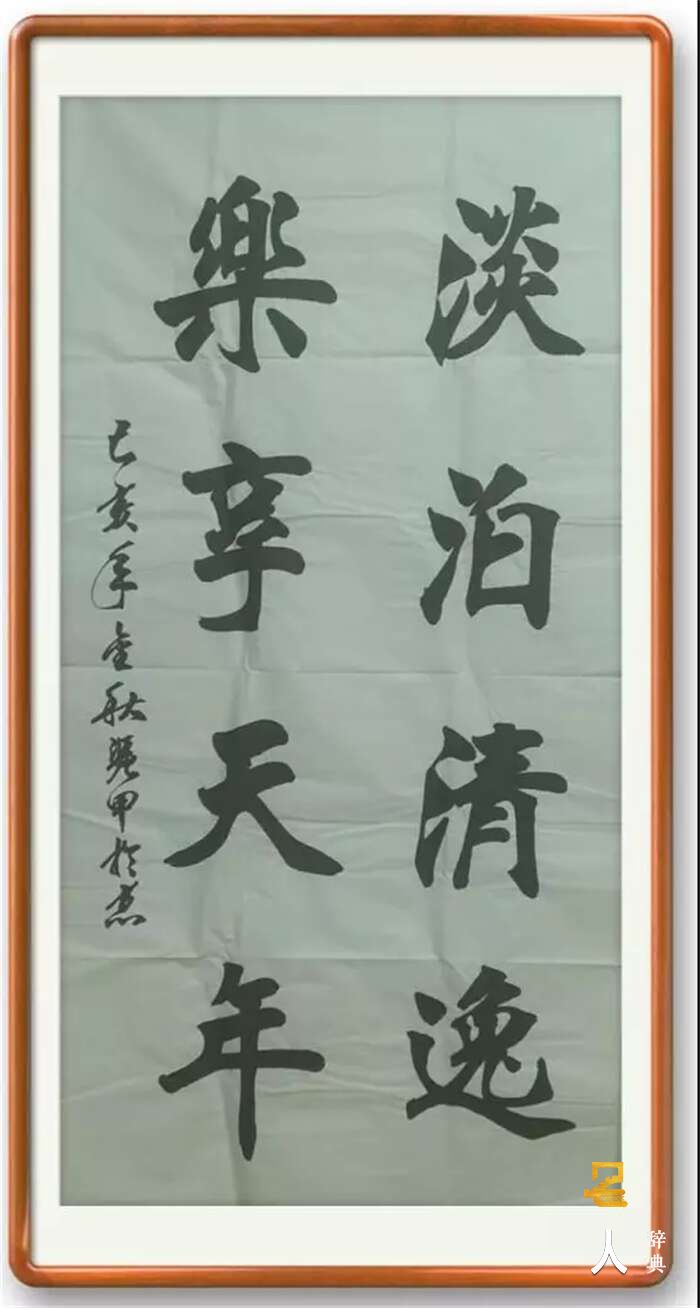 淡泊清逸
樂享天年
己亥年金秋
甲於
名人
辞典